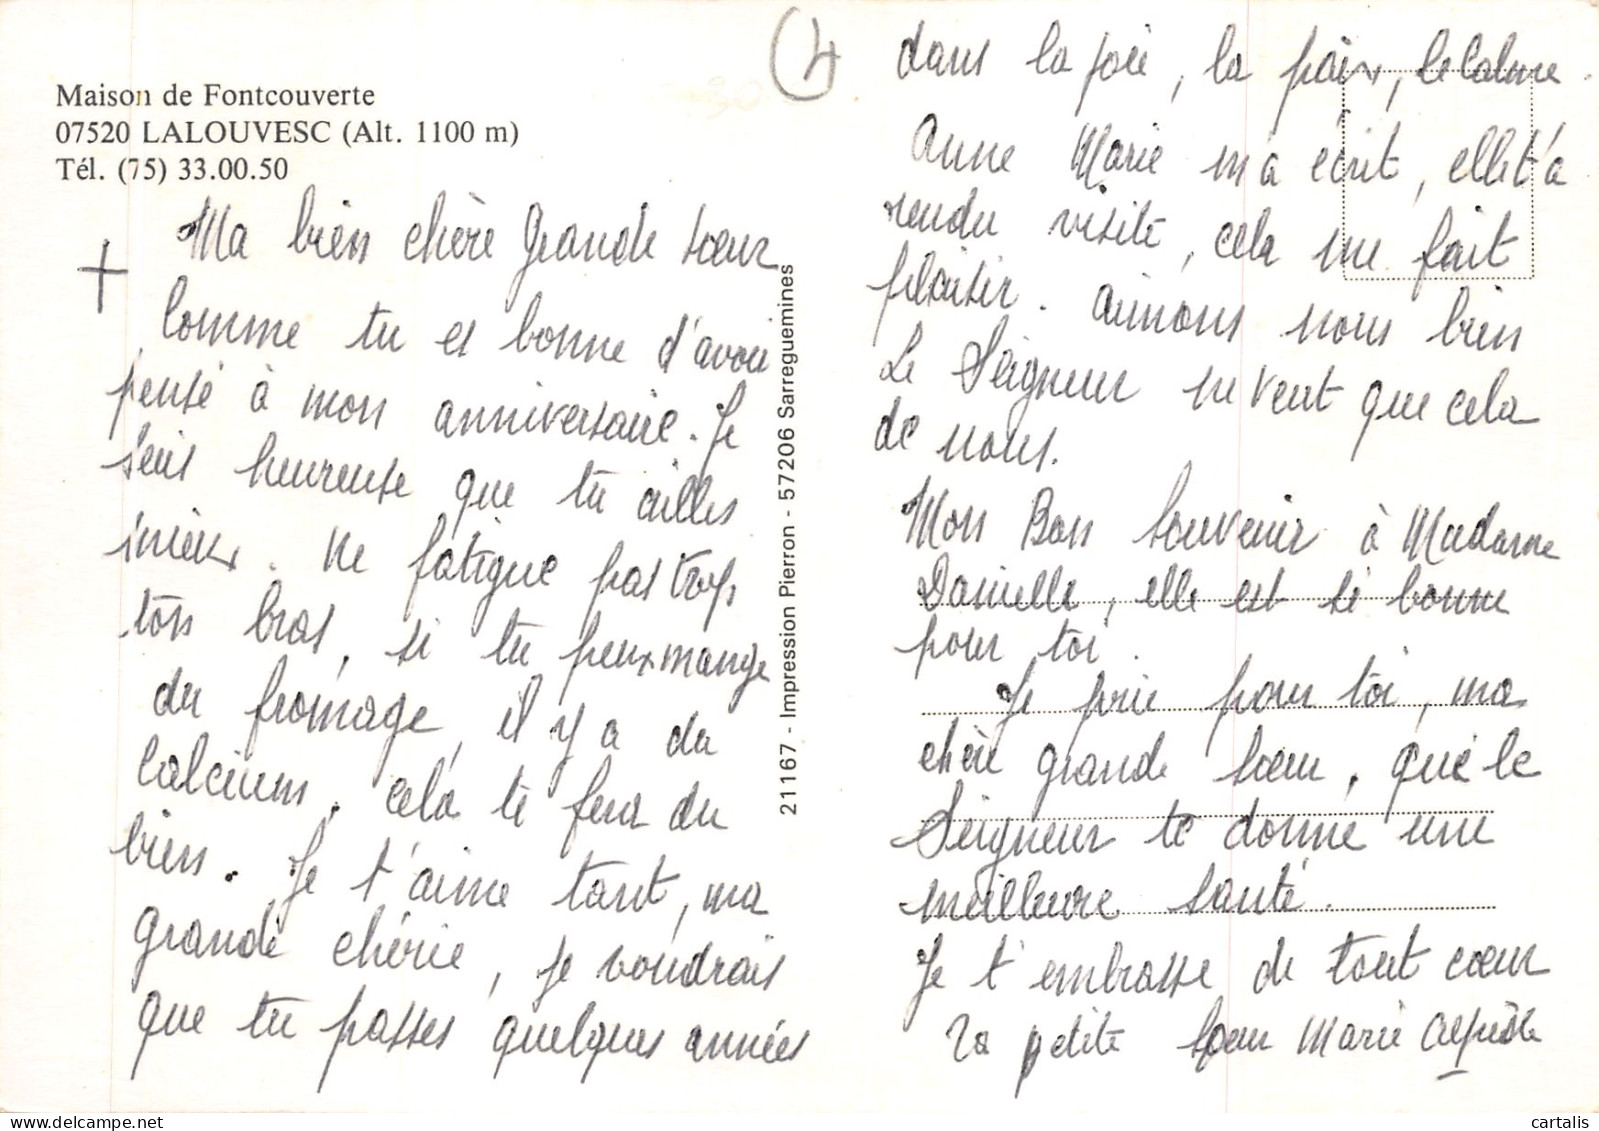 Maison de Fontcouverte
07520 LALOUVESC (Alt. 1100 m)
Tél. (75) 33.00.50
+
Ma bien chère Grande soeur
Comme tu es bonne d'avoir
pensé à mon anniversaire. Je
suis heureuse que tu ailles
mieux. Ne fatigue pas trop
ton bras, si tu peux mange
du fromage, il y a du
Calcium. cela te fera du
bien. Je t'aime tant, ma
grande chérie, je voudrais
que tu passes quelques années
21167 - Impression Pierron - 57206 Sarreguemines
4
dans la joie, la paix, le Calme.
Anne Marie m'a écrit, elle t'a
rendu visite, cela me fait
plaisir. aimons nous bien
Le Seigneur ne veut que cela
de nous.
Mon Bon Souvenir à Madame
Danielle, elle est si bonne
pour toi.
Je prie pour toi, ma
chère grande soeur, que le
Seigneur te donne une
meilleure santé.
Je t'embrasse de tout coeur
ta petite soeur Marie Alfrède
cartalis